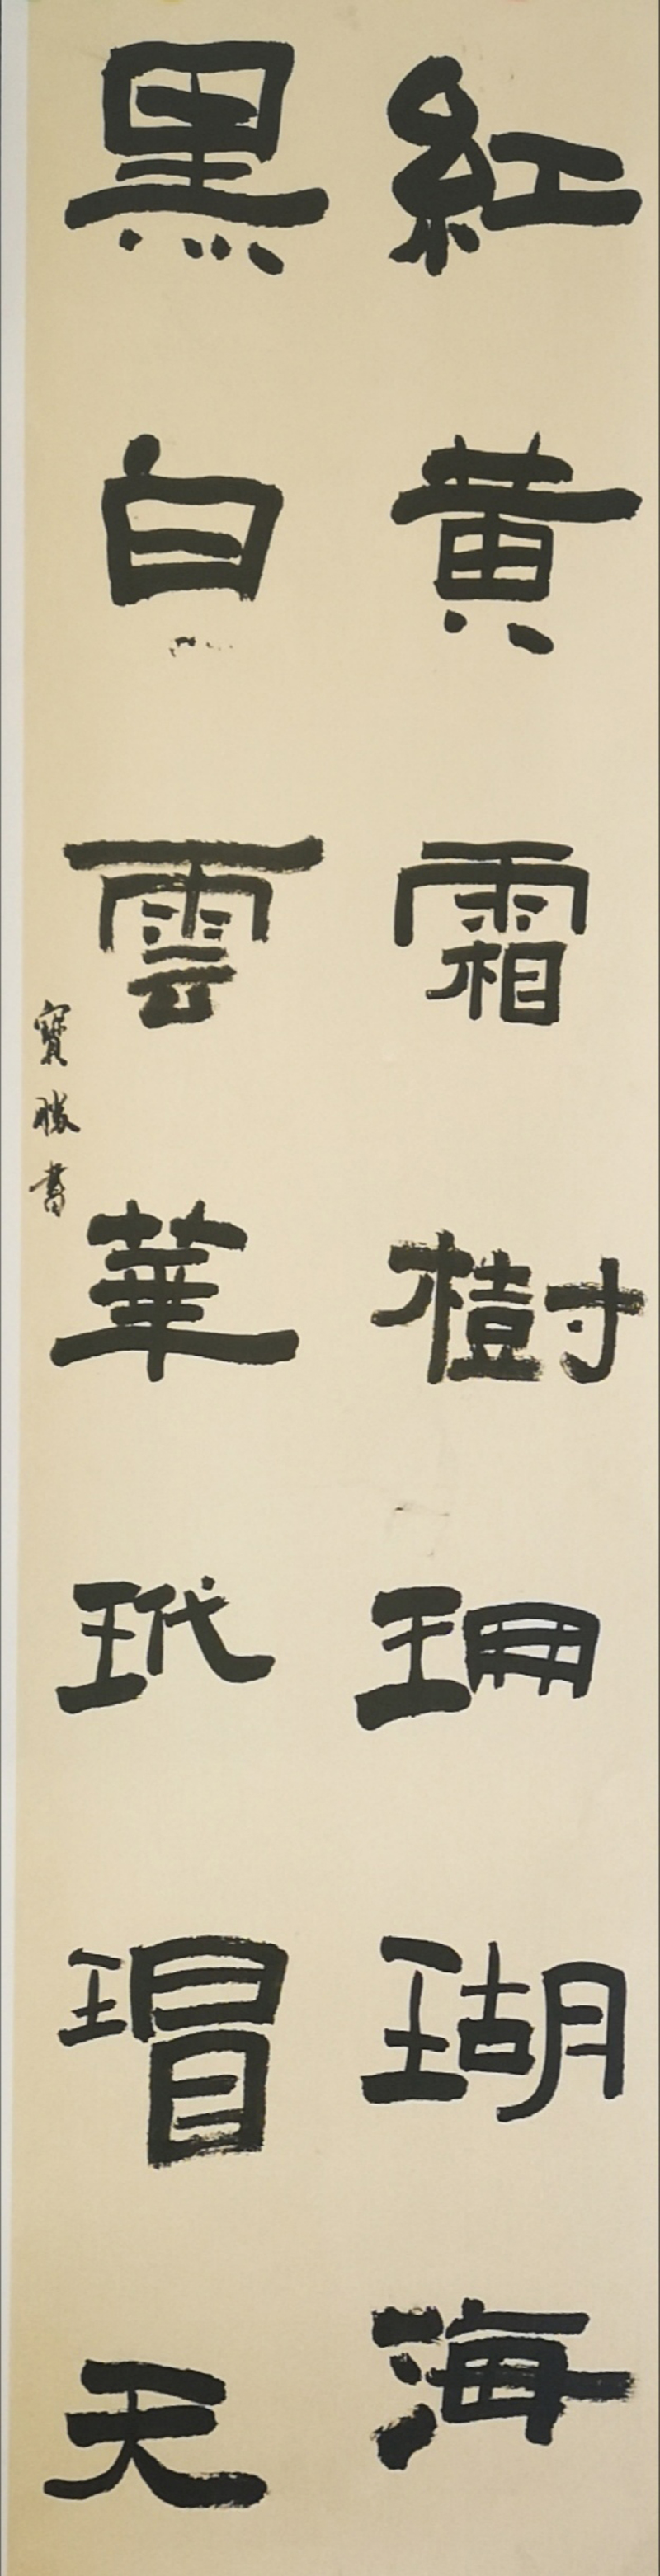 紅黄霜樹珊瑚海
黑白雲華玳瑁天
寶勝書